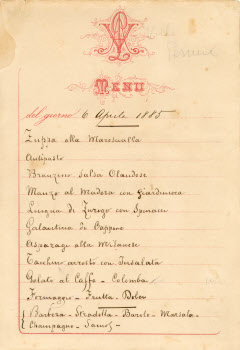 MENU
del giorno 6 Aprile 1885
Zuppa alla Marescialla
Antipasto
Branzino Salsa Olandese
Manzo al Madera con Giardiniera
Lingua di Zurigo con Spinacci
Galantina di Cappone
Asparagi alla Milanese
Tacchino arrosto con Insalata
Gelato al Caffe - Colomba
Formaggio - Frutta - Dolci
Barbera - Stradella - Barolo - Marsala -
Champagne -